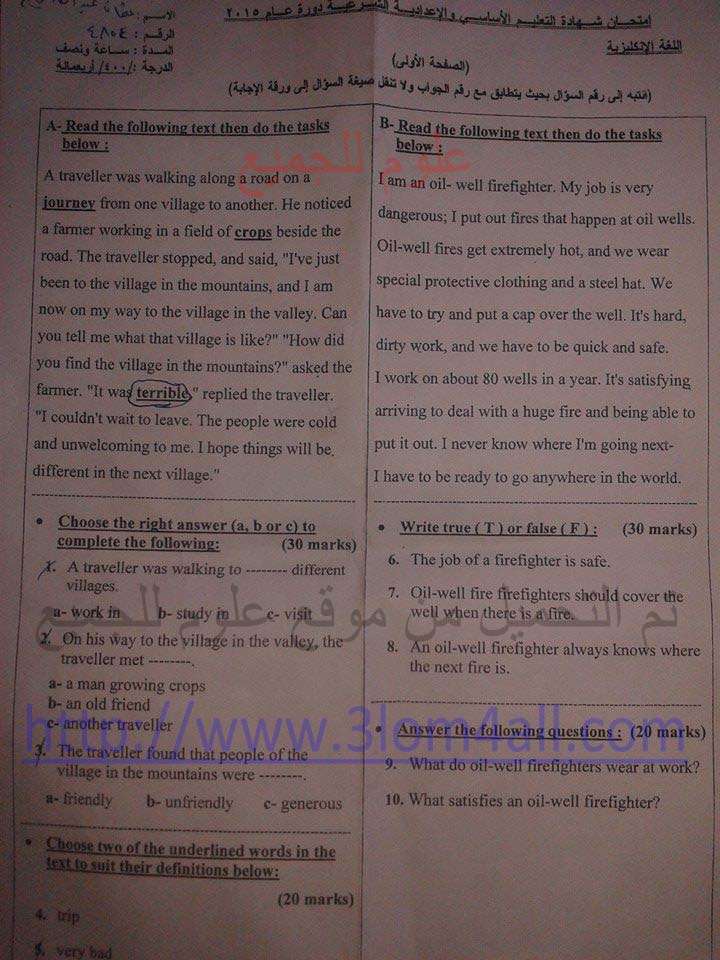 امتحان شهادة التعليم الأساسي والإعدادية الشرعية دورة عام ٢٠١٥
الاسم:
الرقم: ٤٨٥٤
المدة: ساعة ونصف
الدرجة: /٤٠٠/ أربعمائة
اللغة الإنكليزية
(الصفحة الأولى)
(انتبه إلى رقم السؤال بحيث يتطابق مع رقم الجواب ولا تنقل صيغة السؤال إلى ورقة الإجابة)
A- Read the following text then do the tasks
below :
A traveller was walking along a road on a
journey from one village to another. He noticed
a farmer working in a field of crops beside the
road. The traveller stopped, and said, "I've just
been to the village in the mountains, and I am
now on my way to the village in the valley. Can
you tell me what that village is like?" "How did
you find the village in the mountains?" asked the
farmer. "It was terrible," replied the traveller.
"I couldn't wait to leave. The people were cold
and unwelcoming to me. I hope things will be
different in the next village."
• Choose the right answer (a, b or c) to
complete the following: (30 marks)
1. A traveller was walking to -------- different
villages.
a- work in b- study in c- visit
2. On his way to the village in the valley, the
traveller met --------.
a- a man growing crops
b- an old friend
c- another traveller
3. The traveller found that people of the
village in the mountains were --------.
a- friendly b- unfriendly c- generous
• Choose two of the underlined words in the
text to suit their definitions below:
(20 marks)
4. trip
5. very bad
B- Read the following text then do the tasks
below :
I am an oil- well firefighter. My job is very
dangerous; I put out fires that happen at oil wells.
Oil-well fires get extremely hot, and we wear
special protective clothing and a steel hat. We
have to try and put a cap over the well. It's hard,
dirty work, and we have to be quick and safe.
I work on about 80 wells in a year. It's satisfying
arriving to deal with a huge fire and being able to
put it out. I never know where I'm going next-
I have to be ready to go anywhere in the world.
• Write true ( T ) or false ( F ) : (30 marks)
6. The job of a firefighter is safe.
7. Oil-well fire firefighters should cover the
well when there is a fire.
8. An oil-well firefighter always knows where
the next fire is.
• Answer the following questions : (20 marks)
9. What do oil-well firefighters wear at work?
10. What satisfies an oil-well firefighter?
علوم للجميع
تم التحميل من موقع علوم للجميع
http://www.3lom4all.com